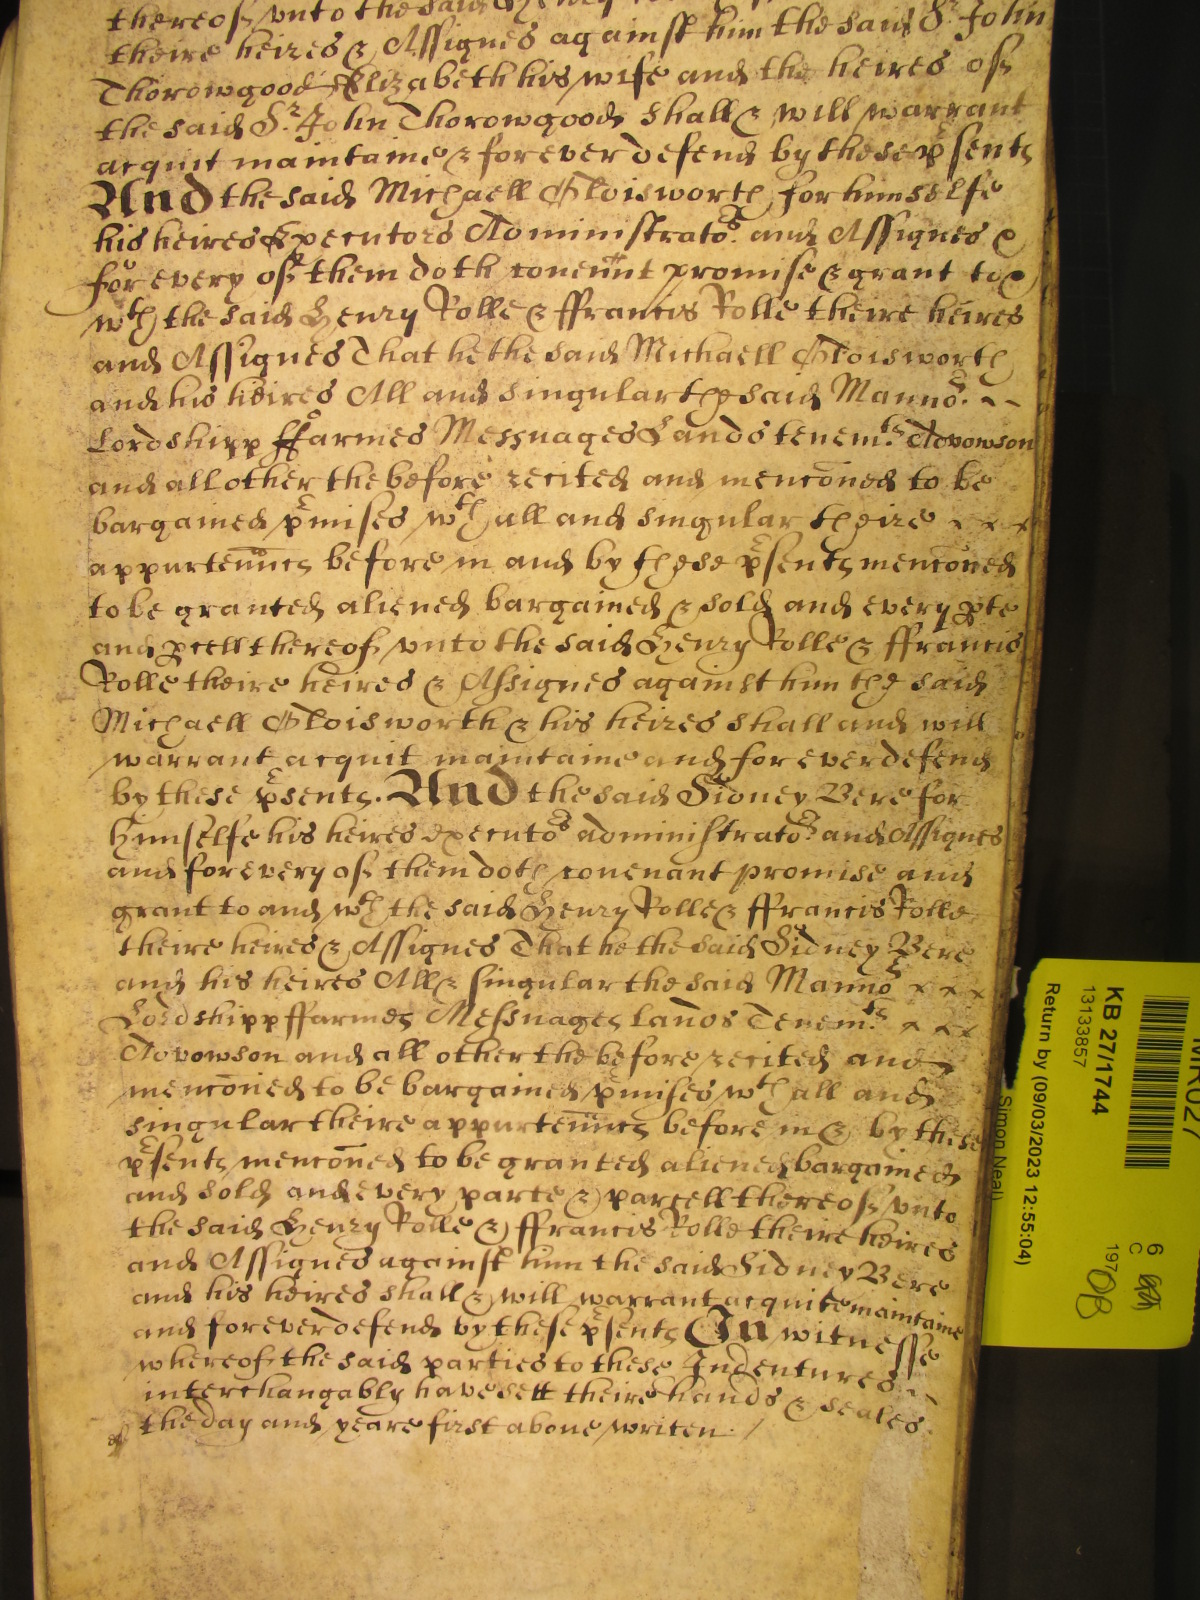 thereof vnto the said Henry
theire heires & Assignes against him the said Sr. John
Thorowgood Elizabeth his wife and the heires of
the said Sr. John Thorowgood shall & will warrant
acquit maintaine & for ever defend by these psents
And the said Michaell Oldisworth for himselfe
his heires Executors Administrators. and Assignes &
for every of them doth couennt promise & grant to &
wth the said Henry Rolle & ffrancis Rolle theire heires
and Assignes That he the said Michaell Oldisworth
and his heires All and singular the said Manno.r
Lordshipp ffarmes Messuages Lands tenem.ts Advowson
and all other the before recited and menconed to be
bargained pmises wth all and singular theire
appurtennčs before in and by these psents menconed
to be granted aliened bargained & sold and every pte
and pcell thereof vnto the said Henry Rolle & ffrancis
Rolle theire heires & Assignes against him the said
Michaell Oldisworth & his heires shall and will
warrant acquit maintaine and for ever defend
by these psents. And the said Sidney Bere for
himselfe his heires executo.rs administrato.rs and Assignes
and for every of them doth couenant promise and
grant to and wth the said Henry Rolle & ffrancis Rolle
theire heires & Assignes That he the said Sidney Bere
and his heires All & singular the said Manno.r
Lordshipp ffarmes Messuages lands Tenem.ts
Advowson and all other the before recited and
menconed to be bargained pmises wth all and
singular theire appurtennčs before in & by these
psents menconed to be granted aliened bargained
and sold and every parte & parcell thereof vnto
the said Henry Rolle & ffrancis Rolle theire heires
and Assignes against him the said Sidney Bere
and his heires shall & will warrant acquite maintaine
and for ever defend by these psents In witnesse
whereof the said parties to these Indentures
interchangably have sett theire hands & seales
the day and yeare first aboue writen /
KB 27/1744
13133857
Return by (09/03/2023 12:55:04)
Simon Neal
6
C
197